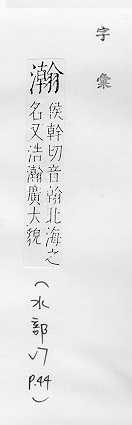 字彙
瀚 侯幹切音翰北海之
名又浩瀚廣大貌
(水部
P.44)